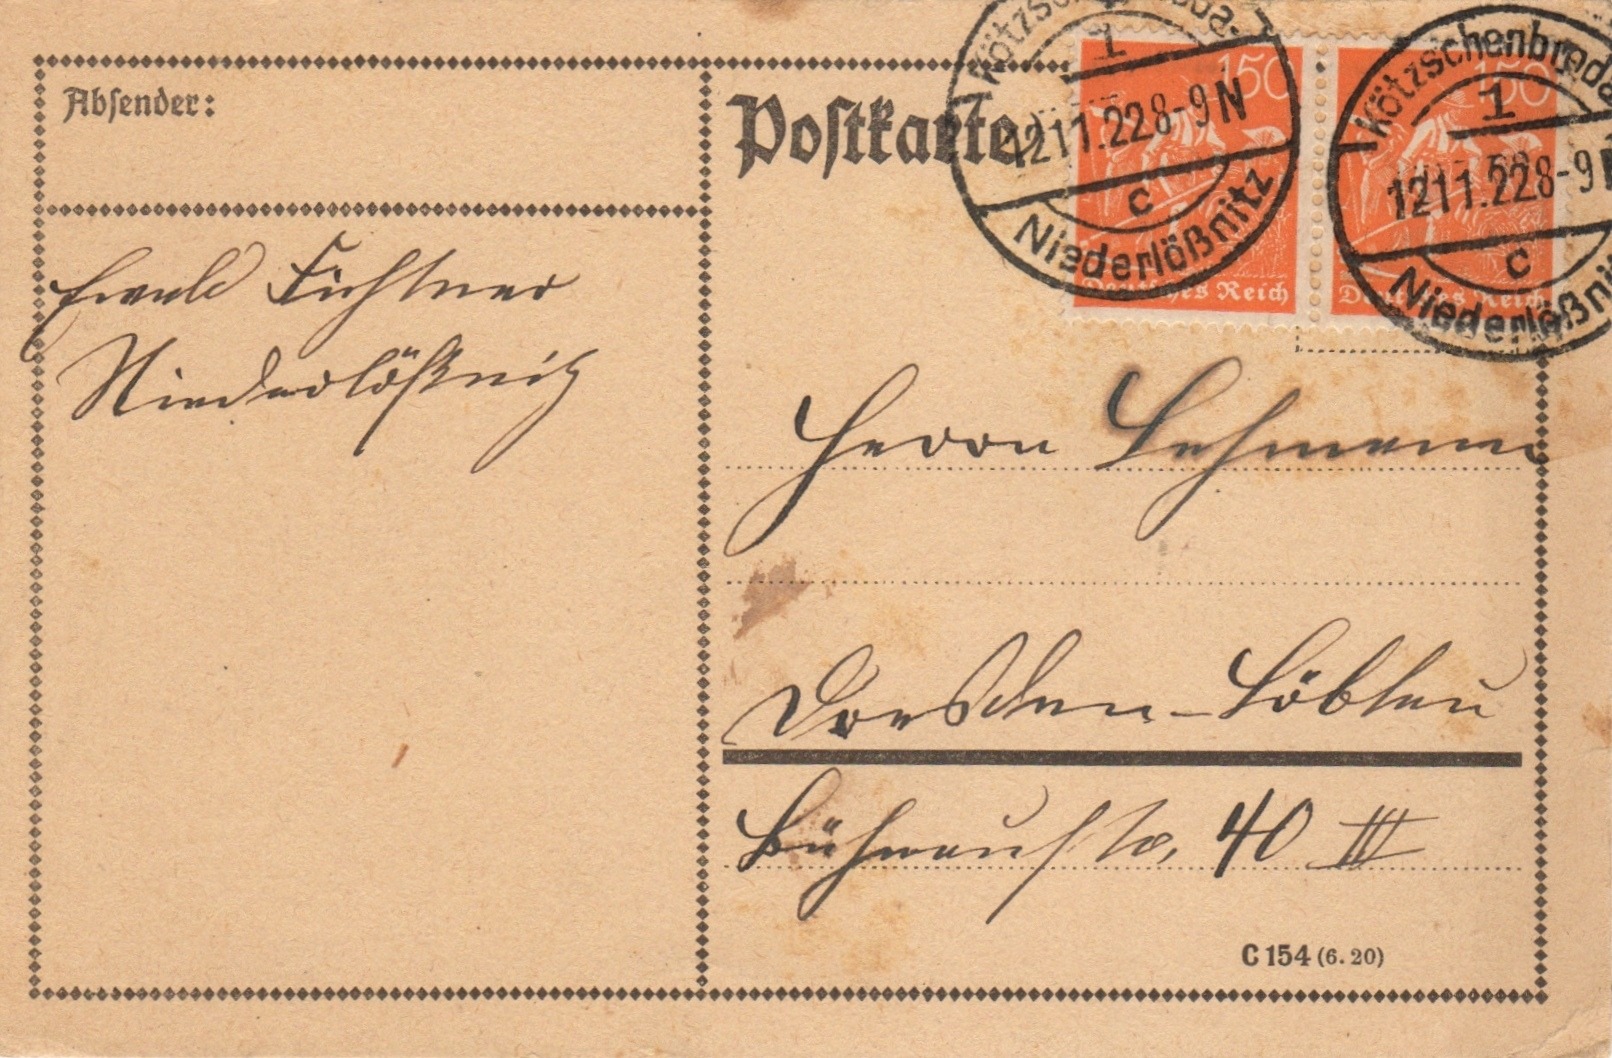 Absender:
Ewald Fichtner
Niederlößnitz
Postkarte
150
150
Deutsches Reich
Deutsches Reich
Kötzschenbroda-
1
12.11.22.8-9N
c
Niederlößnitz
Kötzschenbroda
1
12.11.22.8-9N
c
Niederlößnitz
Herrn Lehmann
Dresden-Löbtau
40 III
C 154 (6.20)